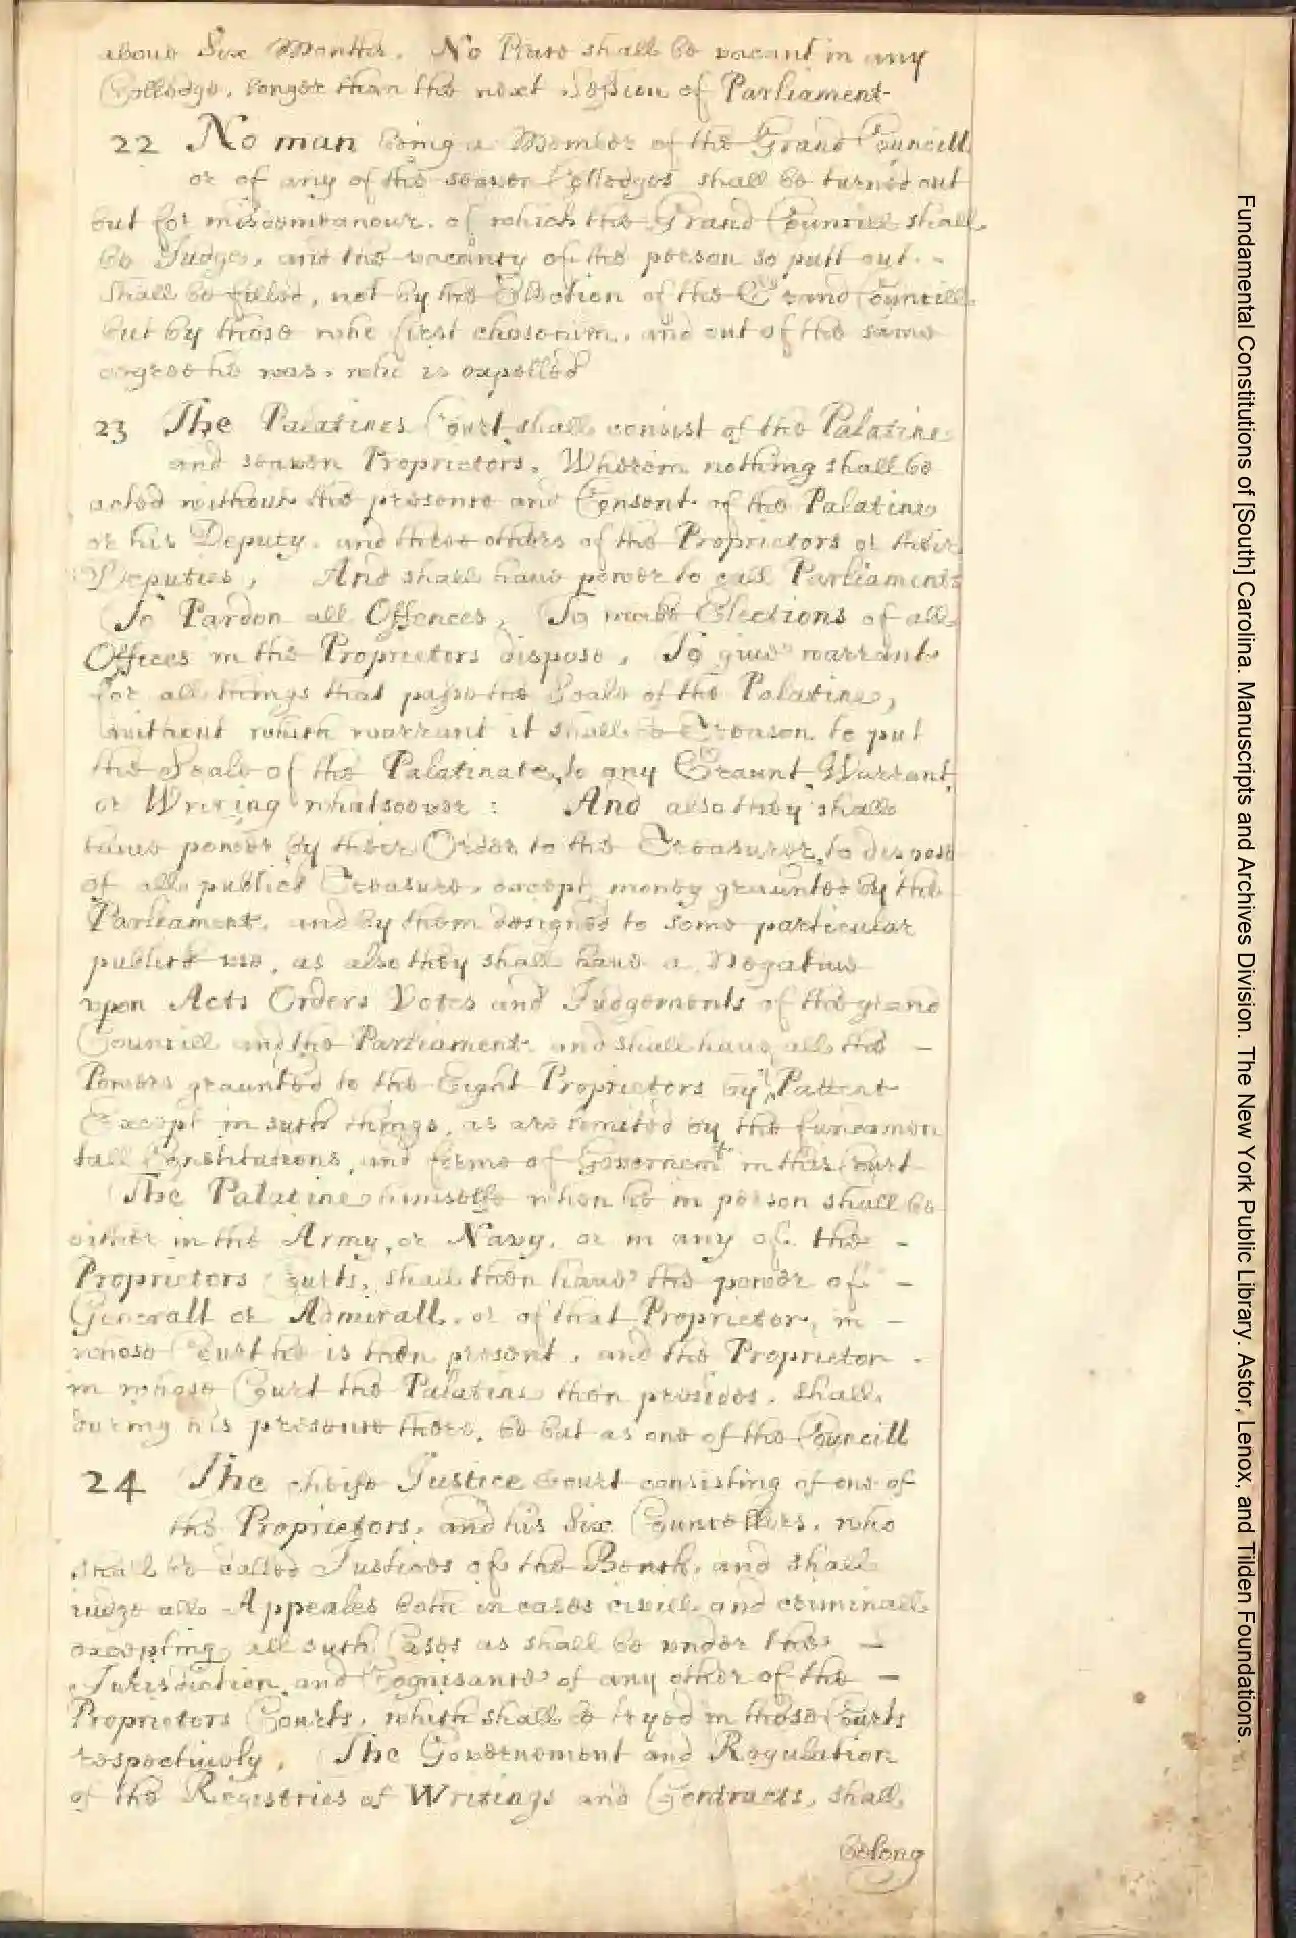 aboue Six Months. No Place shall be vacant in any
Colledge, longer than the next Session of Parliament
22 No man being a Member of the Grand Councill
or of any of the seaven Colledges shall be turned out
but for misdemeanour, of which the Grand Councill shall
be Judge, and the vacancy of the person so putt out -
shall be filled, not by the Election of the Grand Councill
but by those who first chose him, and out of the same
degree he was, who is expelled
23 The Palatines Court shall consist of the Palatine
and seaven Proprietors, Wherein nothing shall be
acted without the presence and Consent of the Palatine
or his Deputy, and three others of the Proprietors or their
Deputies, And shall haue power to call Parliaments
To Pardon all Offences, To make Elections of all
Offices in the Proprietors dispose, To giue warrant
for all things that passe the Seale of the Palatine,
without which warrant it shall be Treason to put
the Seale of the Palatinate to any Graunt, Warrant,
or Writing whatsoever: And also they shall
haue power by their Order to the Treasurer, to dispose
of all publick Treasure, except money graunted by the
Parliament, and by them designed to some particular
publick use, as also they shall haue a Negatiue
upon Acts Orders Votes and Judgements of the grand
Councill and the Parliament and shall haue all the -
Powers graunted to the Eight Proprietors by Pattent
Except in such things, as are limited by the fundamen
tall Constitutions, and forme of Governemt in this Court
The Palatine himselfe when he in person shall be
either in the Army, or Navy, or in any of the -
Proprietors Courts, shall then haue the power of -
Generall or Admirall, or of that Proprietor, in -
whose Court he is then present, and the Proprietor -
in whose Court the Palatine then presides, shall
during his presence there, be but as one of the Councill
24 The cheife Justice Court consisting of one of
the Proprietors, and his Six Councellors, who
shall be called Justices of the Bench, and shall
iudge all Appeales both in cases civill and criminall
excepting all such Cases as shall be under the -
Jurisdiction and Cognisance of any other of the -
Proprietors Courts, which shall be tryed in those Courts
respectiuely, The Governement and Regulation
of the Registries of Writings and Contracts, shall
belong
Fundamental Constitutions of [South] Carolina. Manuscripts and Archives Division. The New York Public Library. Astor, Lenox, and Tilden Foundations.